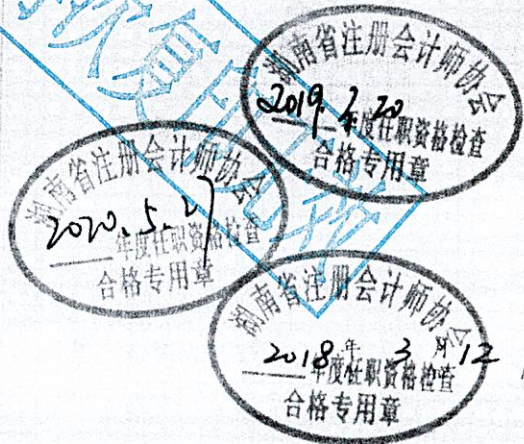 湖南省注册会计师协会
2019
年度任职资格检查
合格专用章
湖南省注册会计师协会
2020.5.27
年度任职资格检查
合格专用章
湖南省注册会计师协会
2018年3月12
年度任职资格检查
合格专用章